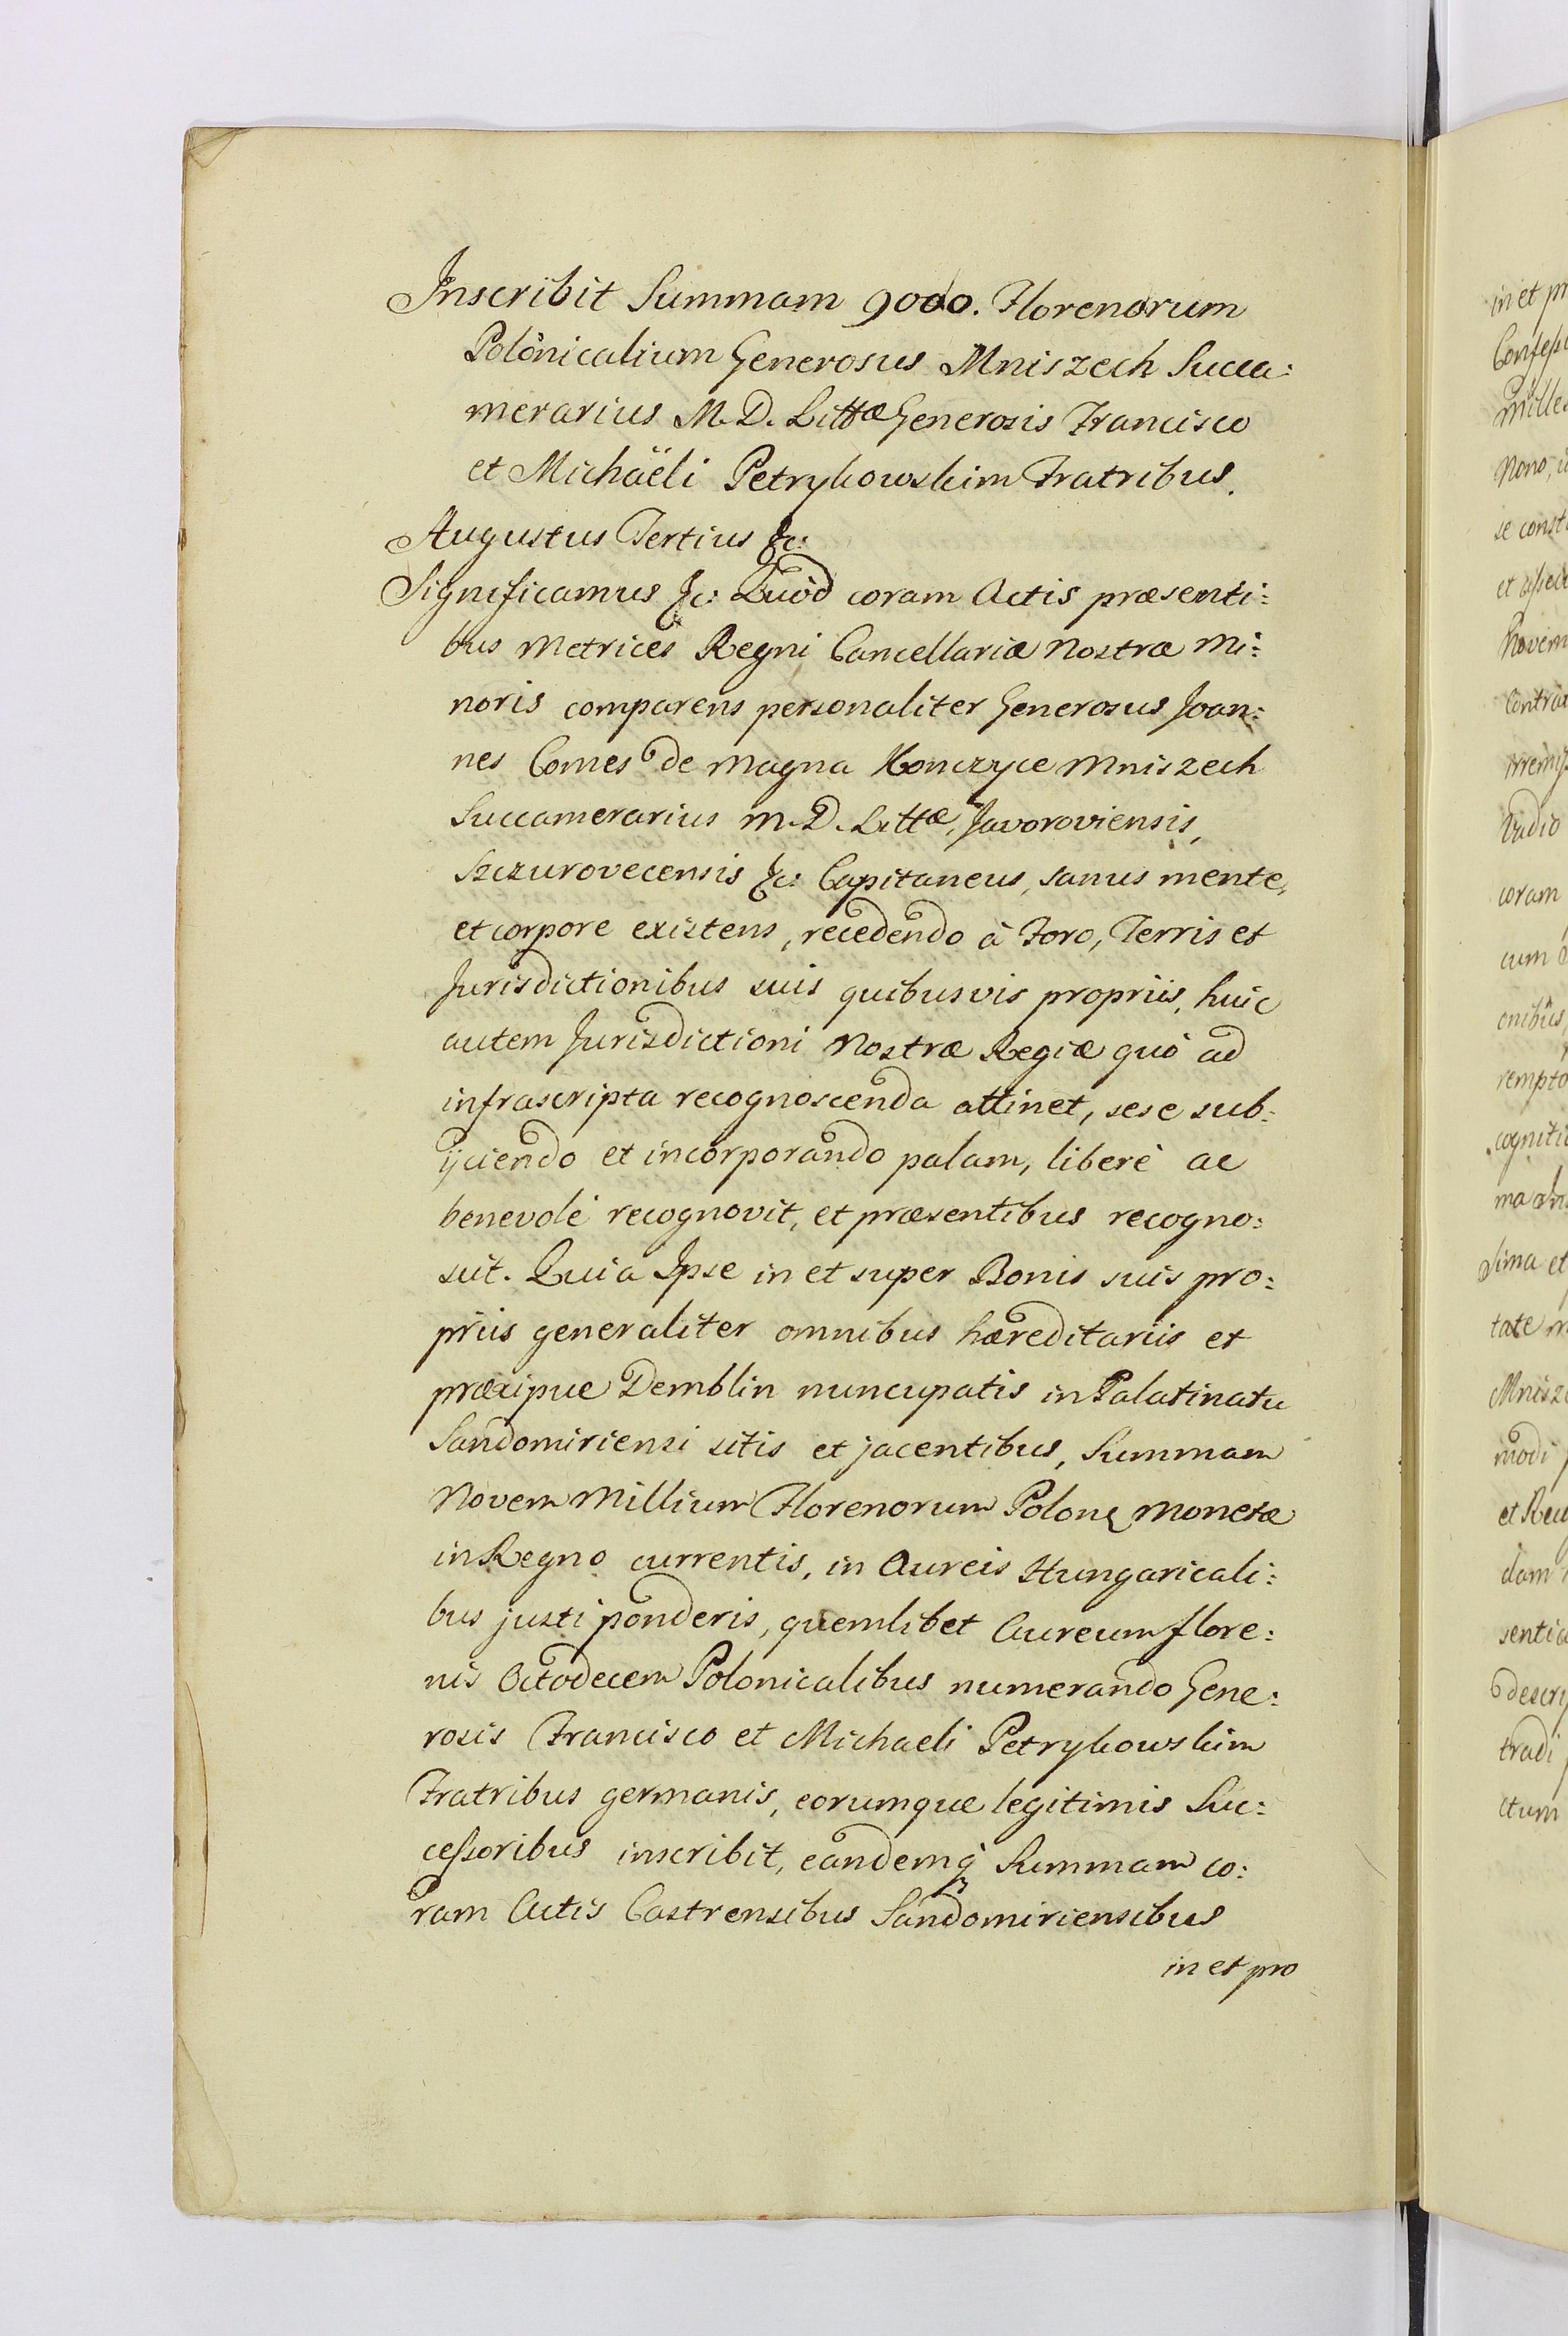 Inscribit Summam 9000. Florenorum
Polonicalium Generosus Mniszech Succa:
merarius M. D. Littæ Generosis Francisco
et Michäeli Petrykowskim Fratribus.
Augustus Tertius &c:
Significamus &c: Quòd coram Actis præsenti:
bus Metrices Regni Cancellariæ Nostræ Mi:
noris comparens personaliter Generosus Joan:
nes Comes de Magna Konczyce Mniszech
Succamerarius M. D. Littæ, Javoroviensis,
Szczurovecensis &c: Capitaneus, sanus mente,
et corpore existens, recedendo à Foro, Terris et
Jurisdictionibus suis quibusvis propriis, huic
autem Jurisdictioni Nostræ Regiæ quò ad
infrascripta recognoscenda attinet, sese sub:
ijciendo et incorporando palam, liberè ac
benevolè recognovit, et præsentibus recogno:
scit. Quia Ipse in et super Bonis suis pro:
priis generaliter omnibus hæreditariis et
præcipue Demblin nuncupatis in Palatinatu
Sandomiriensi sitis et jacentibus, Summam
Novem Millium Florenorum Polonę Monetæ
in Regno currentis, in Aureis Hungaricali:
bus justi ponderis, quemlibet Aureum flore:
nis Octodecem Polonicalibus numerando Gene:
rosis Francisco et Michaeli Petrykowskim
Fratribus germanis, eorumque legitimis Suc:
cessoribus inscribit, eandemq̀ Summam co:
ram Actis Castrensibus Sandomiriensibus
in et pro
in et pr
mille
Nono,
se const
Novem
Contra
Vadio
coram
cum
onibus,
rempto
cogniti
sima et
tate
Mnisz
modi
dam
senti
descri
tradi
ctum